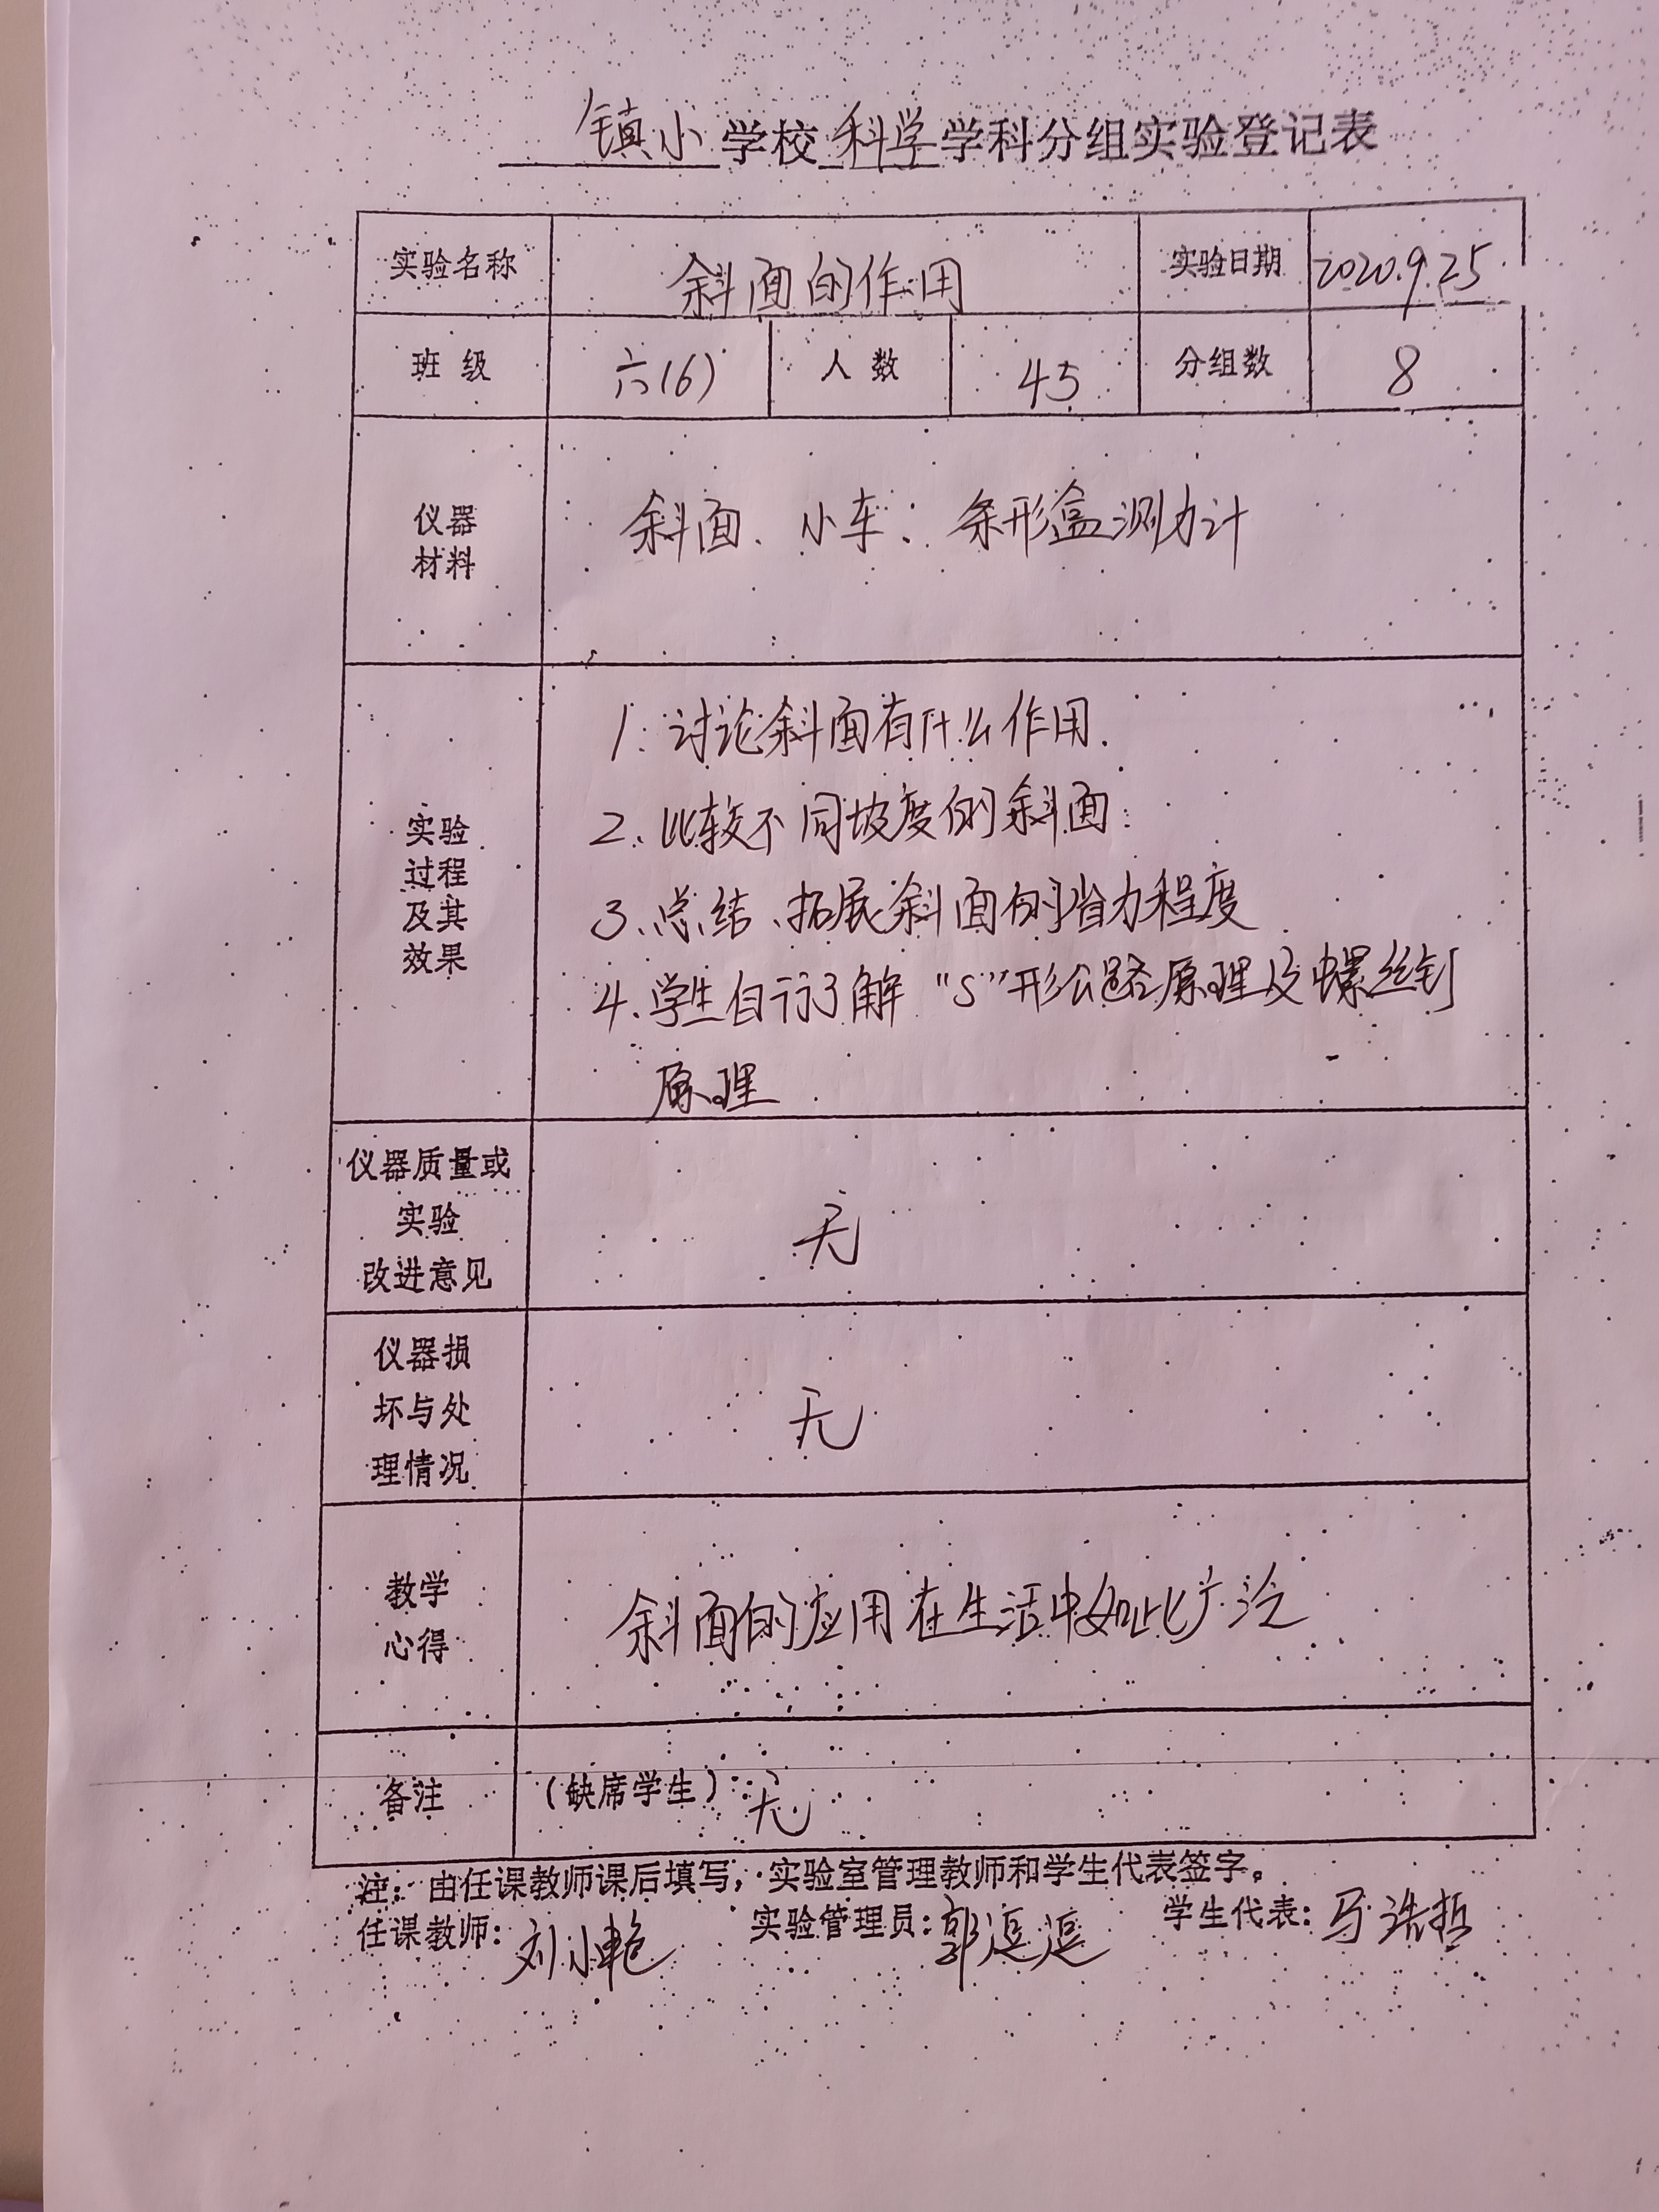 镇小学校科学学科分组实验登记表
实验名称 斜面的作用 实验日期 2020.9.25
班级 六(6) 人数 45 分组数 8
仪器
材料
斜面、小车、条形盒测力计
实验
过程
及其
效果
1. 讨论斜面有什么作用.
2、比较不同坡度的斜面.
3、总结、拓展斜面的省力程度
4、学生自行了解“S”形公路原理及螺丝钉
原理
仪器质量或
实验
改进意见
无
仪器损
坏与处
理情况
无
教学
心得
斜面的应用在生活中如此广泛
备注 (缺席学生) 无
注：由任课教师课后填写，实验室管理教师和学生代表签字。
任课教师：刘小艳 实验管理员：郭 学生代表：马浩哲